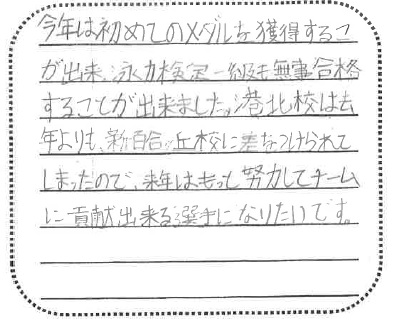 今年は初めてのメダルを獲得するこ
が出来、泳力検定一級も無事合格
することが出来ました。港北校は去
年よりも、新百合ヶ丘校に差をつけられて
しまったので、来年はもっと努力してチーム
に貢献出来る選手になりたいです。